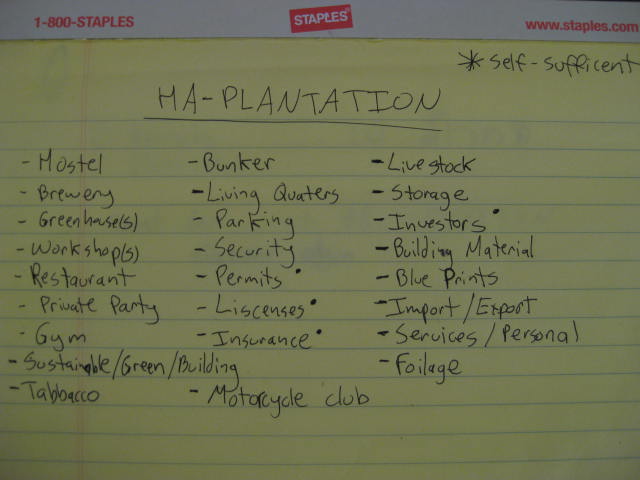 1-800-STAPLES STAPLES www.staples.com
* self-sufficent
MA-PLANTATION
- Hostel - Bunker - Livestock
- Brewery - Living Quaters - Storage
- Greenhouse(s) - Parking - Investors •
- Workshop(s) - Security - Building Material
- Restaurant - Permits • - Blue Prints
- Private Party - Liscenses • - Import/Export
- Gym - Insurance • - Services/Personal
- Sustainable/Green/Building - Foilage
- Tabbacco - Motorcycle club